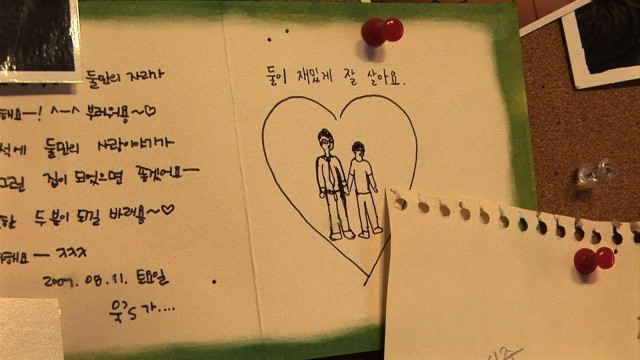 둘만의 자리가
해요—! ^-^ 부러워용~♡
석에 둘만의 사랑이야기가
그릴 집이 되었으면 좋겠어요—
한 두분이 되길 바래용~♡
해요 — ㅈㅈㅈ
2007. 08. 11. 토요일
가....
둘이 재밌게 잘 살아요.